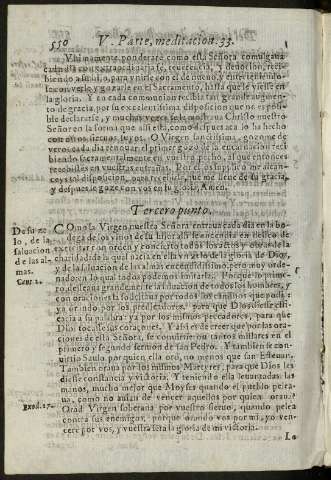 550 V. Parte, meditacion. 33.
Vltimamente ponderarè como esta Señora comulgaua
cada dia con extraordinaria fe, reuerencia, y deuocion, reci-
biendo a su hijo, para vnirse con el de nueuo, y entretenien
conuerle y gozarse en el Sacramento, hasta que le viesse en
la gloria. Y en cada comunion recibia tan grande augmen-
to de gracia, por su excelentissima disposicion que no es posi-
ble declararse, y muchas vezes se le mostraua Christo nuestro
Señor en la forma que alli està, como despues acà lo ha hecho
con otros sieruos suyos. O Virgen santissima, gozome de
veros cada dia renouar el primer gozo de la encarnacion reci-
biendo sacramentalmente en vuestro pecho, al que entonces
recebistes en vuestras entrañas. Por el os suplico me alcan-
ceys tal disposicion, para recebirle, que me llene de su gracia,
y despues le goze con vos en su gloria, Amen.
Tercero punto.
De su ze-
lo, de la
saluacion
de las al-
mas.
Cant. 2.
COmo la Virgen nuestra Señora entraua cada dia en la bo-
dega de los vinos de la caridad
exercitar con orden y concierto todos los actos y obras de la
charidad de la qual nacia en ella vn zelo de la gloria de Dios,
y de la saluacion de las almas excelentissimo, pero muy orde-
nado en lo qual todos podemos imitarla. Porque lo prime-
ro desseaua grandemente la saluacion de todos los hombres, y
con oraciones la solicitaua por todos los caminos que podia:
ya orando por los predicadores, para que Dios diesse effi-
cacia a su palabra: ya por los mismos pecadores, para que
Dios tocasse sus coraçones. Y assi es de creer que por las ora-
ciones de esta Señora, se conuirtieron tantos millares en el
primero y segundo sermon de san Pedro. Y tambien se con-
uirtio Saulo por quien ella orò, no menos que san Esteuan.
Tambien oraua por los mismos Martyres, para que Dios les
diesse constancia y victoria. Y teniendo ella leuantadas las
manos, mucho mejor que Moyses quando el pueblo pelea-
Exod. 17.
ua, como no auian de vencer aquellos por quien oraua?
Orad Virgen soberana por vuestro sieruo, quando pelea
contra sus enemigos, porque orando vos por mi, yo ven-
cerè por vos, y vuestra serà la gloria de mi victoria.
Lo